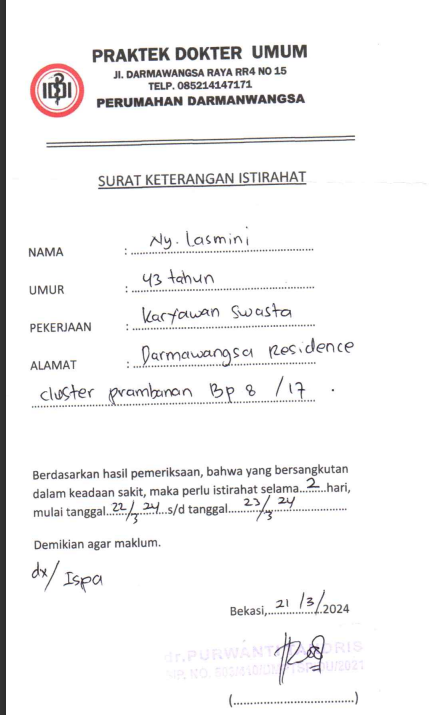 IDI
PRAKTEK DOKTER UMUM
Jl. DARMAWANGSA RAYA RR4 NO 15
TELP. 085214147171
PERUMAHAN DARMANWANGSA
SURAT KETERANGAN ISTIRAHAT
NAMA : Ny. Lasmini
UMUR : 43 tahun
PEKERJAAN : Karyawan Swasta
ALAMAT : Darmawangsa Residence
cluster prambanan Bp 8 /17 .
Berdasarkan hasil pemeriksaan, bahwa yang bersangkutan
dalam keadaan sakit, maka perlu istirahat selama...2...hari,
mulai tanggal..22/3 24...s/d tanggal....23/3 24..............
Demikian agar maklum.
dx/ Ispa
Bekasi,..21/3/2024
dr.PURWANT
(................................)